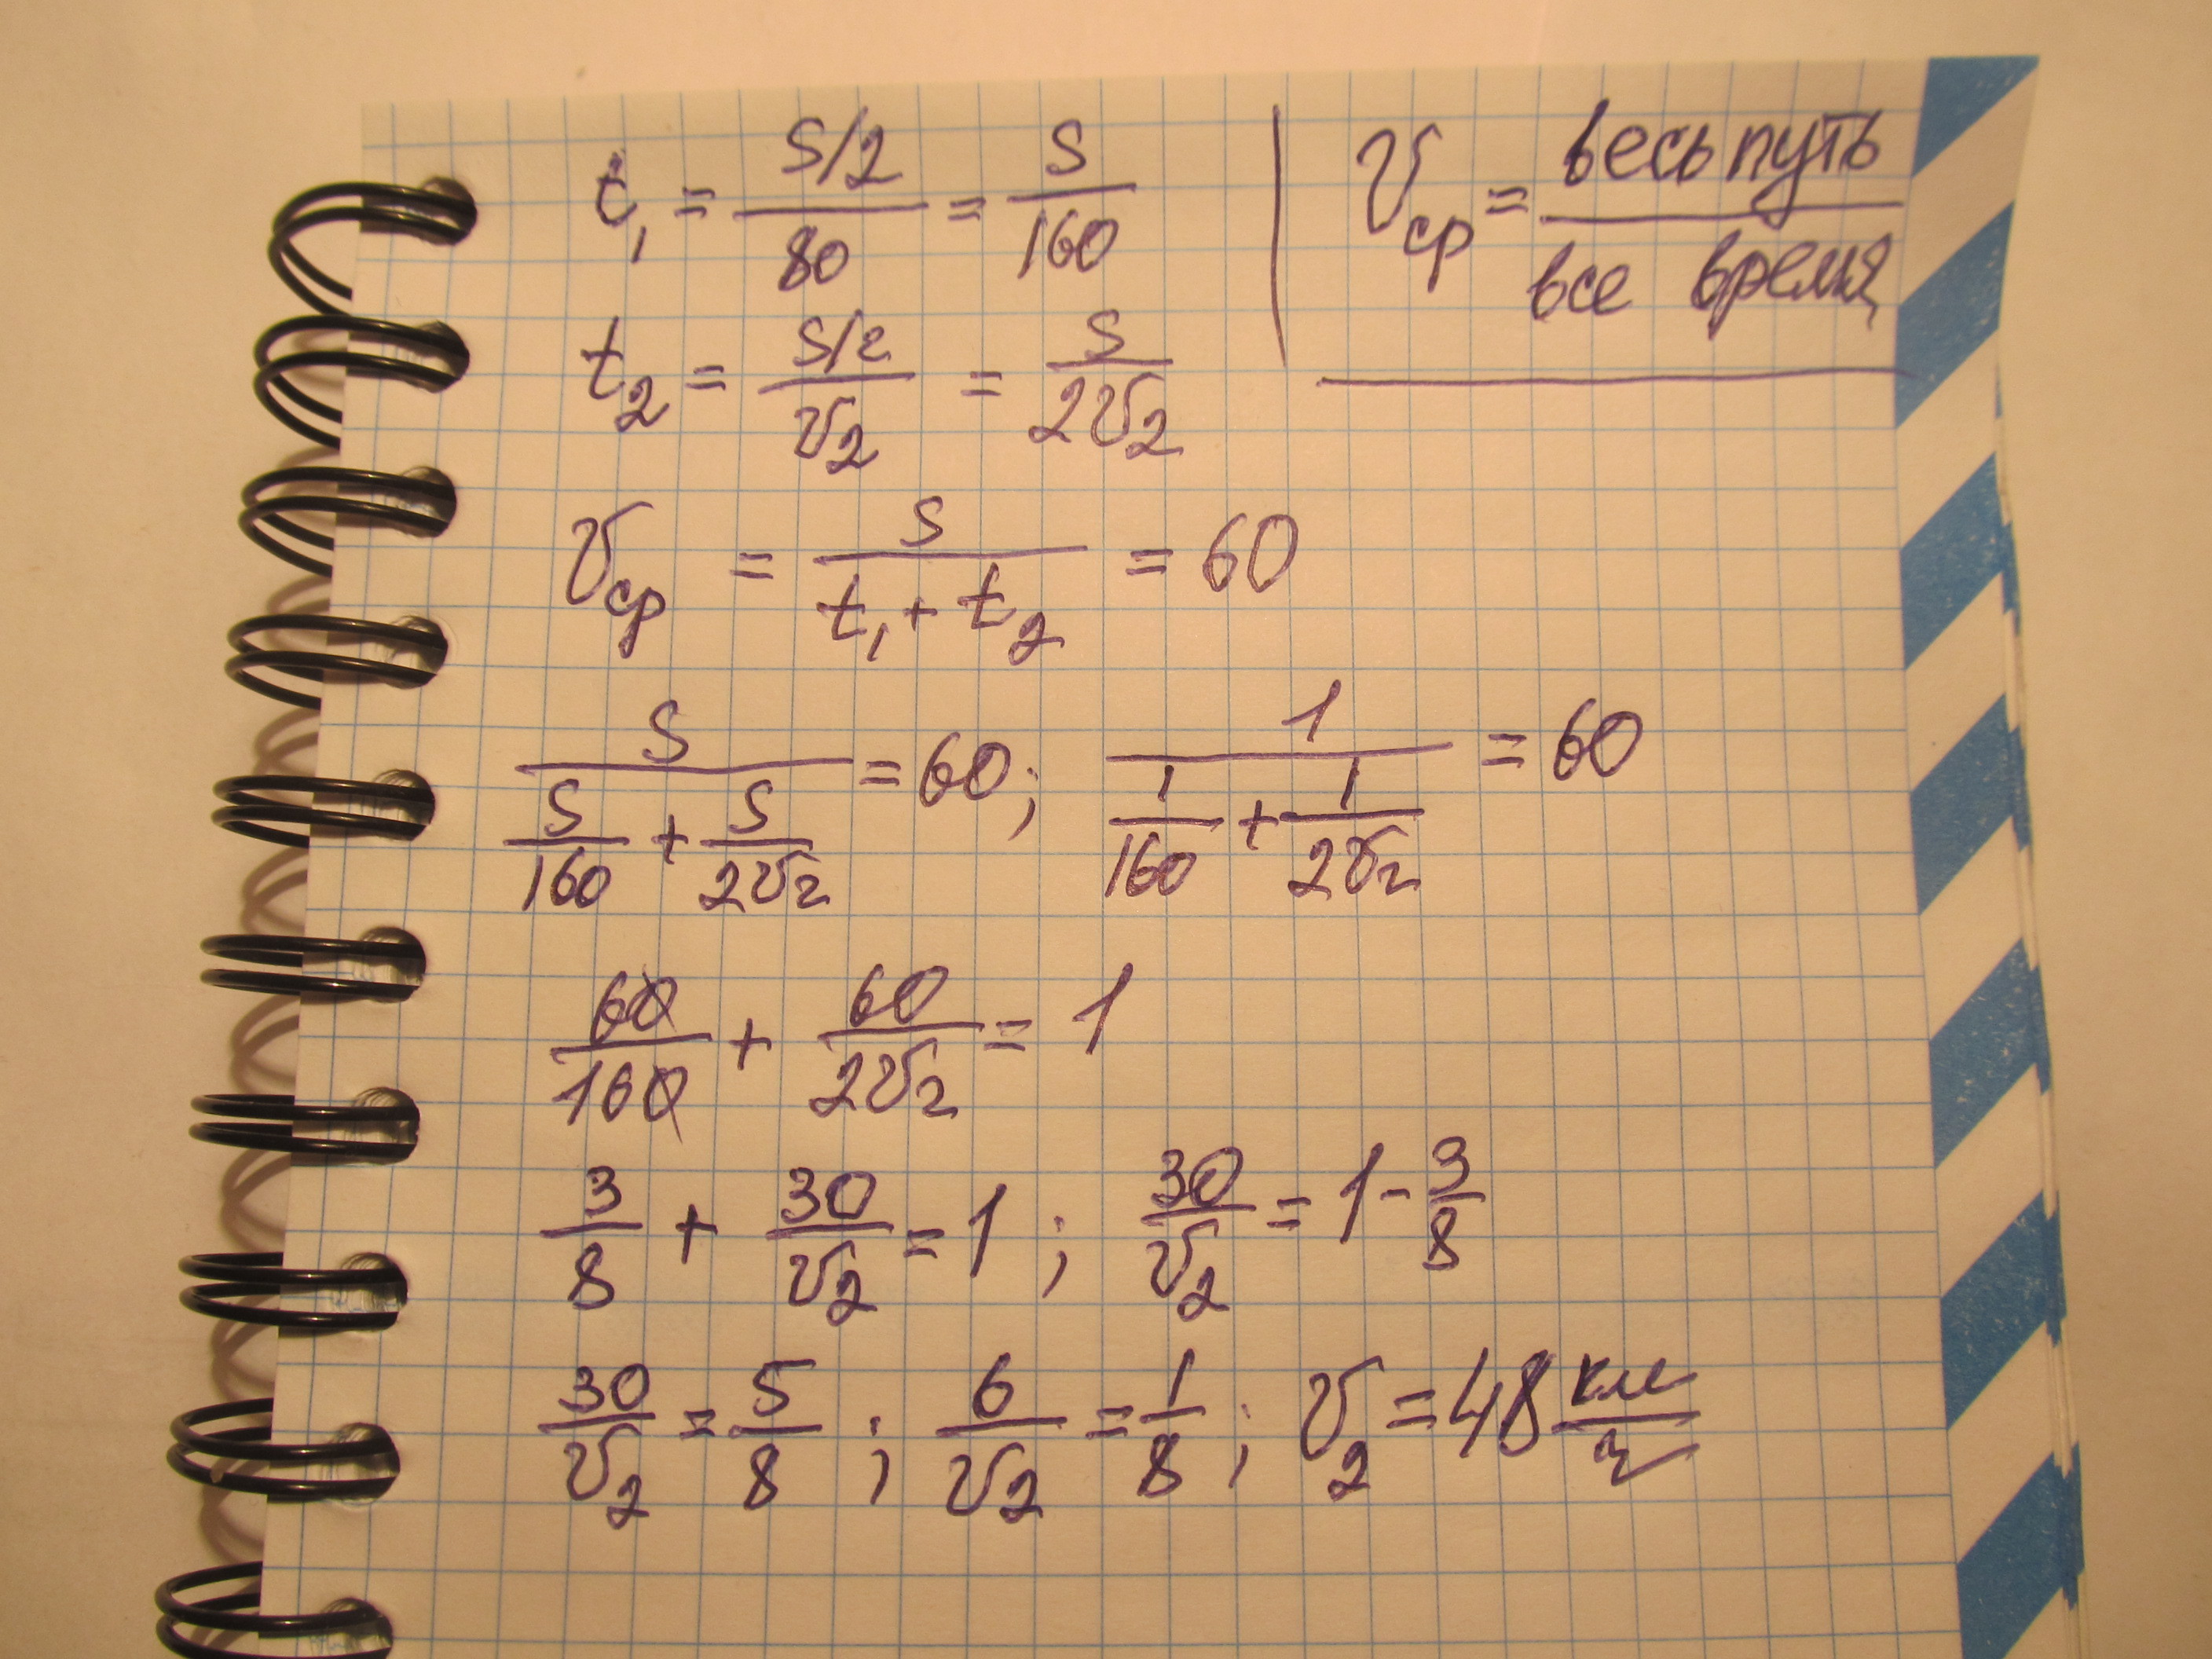 t₁ = (S/2)/80 = S/160
V_ср = весь путь/все время
t₂ = (S/2)/V₂ = S/(2V₂)
V_ср = S/(t₁ + t₂) = 60
S/(S/160 + S/(2V₂)) = 60; 1/(1/160 + 1/(2V₂)) = 60
60/160 + 60/(2V₂) = 1
3/8 + 30/V₂ = 1; 30/V₂ = 1 - 3/8
30/V₂ = 5/8; 6/V₂ = 1/8; V₂ = 48 км/ч